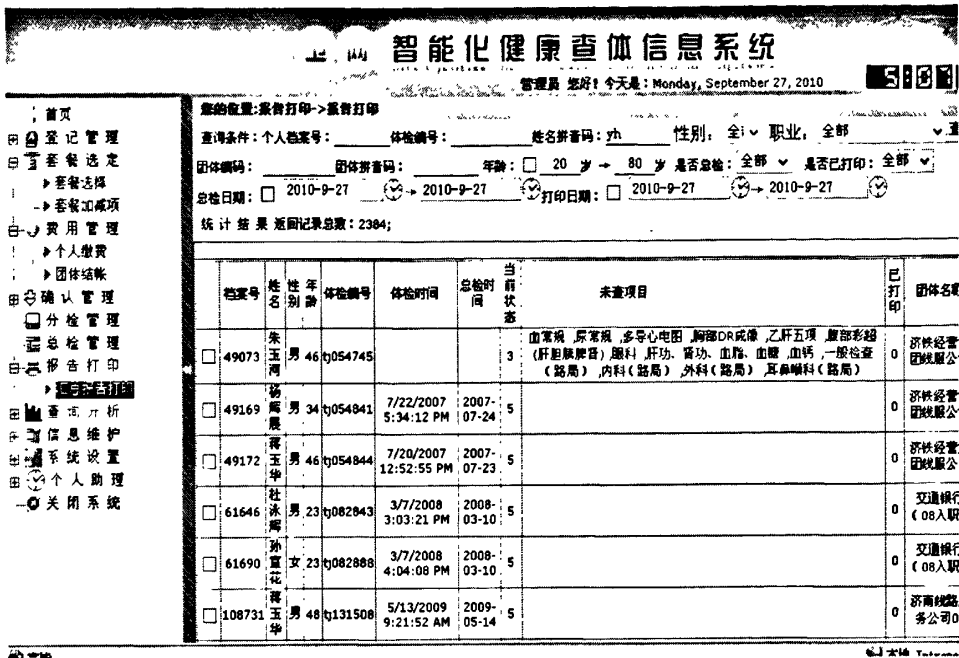 智能化健康查体信息系统
管理员 您好! 今天是: Monday, September 27, 2010
您的位置:报告打印->报告打印
首页
登记管理
套餐选定
套餐选择
套餐加减项
费用管理
个人缴费
团体结帐
确认管理
分检管理
总检管理
报告打印
信息维护
系统设置
个人助理
关闭系统
查询条件:个人档案号: 体检编号: 姓名拼音码: yh 性别: 职业: 全部
团体编码: 团体拼音码: 年龄: 20 岁 → 80 岁 是否总检: 全部 是否已打印: 全部
总检日期: 2010-9-27 → 2010-9-27 打印日期: 2010-9-27 → 2010-9-27
统计结果 返回记录总数: 2384;
档案号 姓名 性别 年龄 体检编号 体检时间 总检时间 当前状态 未查项目 已打印
49073 朱玉河 男 46 tj054745 3 血常规 ,尿常规 ,多导心电图 ,胸部DR成像 ,乙肝五项 ,腹部彩超
(肝胆胰脾肾) ,眼科 ,肝功、肾功、血脂、血糖 ,血钙 ,一般检查
(路局) ,内科(路局) ,外科(路局) ,耳鼻喉科(路局) 0 济铁经营
49169 杨辉晨 男 34 tj054841 7/22/2007 5:34:12 PM 2007-07-24 5 0 济铁经营
49172 蒋玉华 男 46 tj054844 7/20/2007 12:52:55 PM 2007-07-23 5 0 济铁经营
61646 杜泳辉 男 23 tj082843 3/7/2008 3:03:21 PM 2008-03-10 5 0 交通银行
(08入职
61690 孙宣花 女 23 tj082888 3/7/2008 4:04:08 PM 2008-03-10 5 0 交通银行
(08入职
108731 蒋玉华 男 48 tj131508 5/13/2009 9:21:52 AM 2009-05-14 5 0 济南线路
务公司0